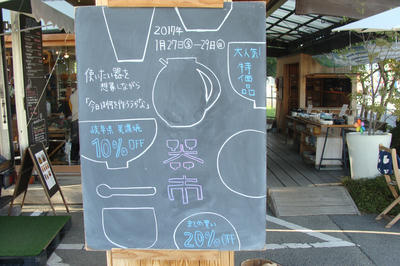 2017年
1月27日㊎—29日㊐
大人気
特価品
使いたい器を
想像しながら
「今日は何を作ろうかな」
岐阜県 美濃焼
10%OFF
器市
まとめ買い
20%OFF